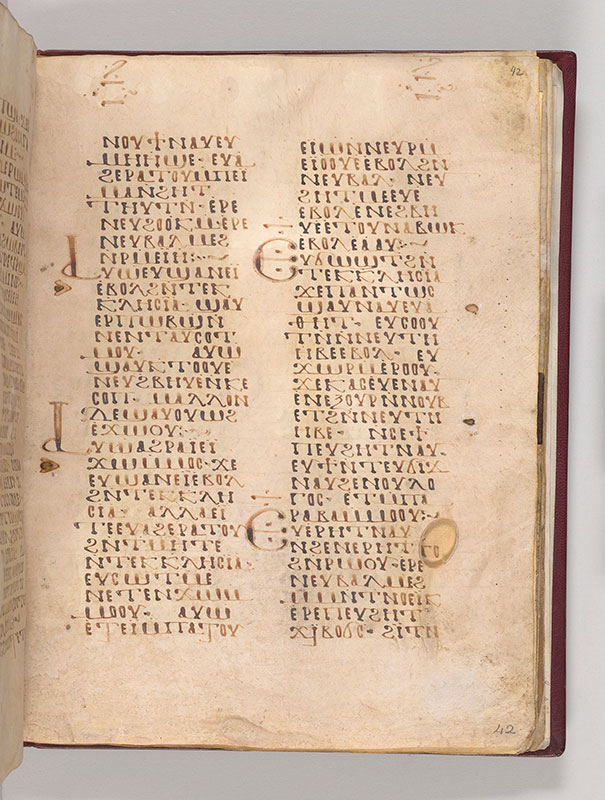 42
ⲛⲟⲩϯⲛⲁⲩⲉⲩ
ⲙⲏⲏϣⲉ· ⲉⲩⲁ
ϩⲉⲣⲁⲧⲟⲩⲙⲡⲉⲓ
ⲙⲁⲛϩⲏⲧ
ⲧⲏⲩⲧⲛ· ⲉⲣⲉ
ⲛⲉⲩϩⲟⲟⲕⲙⲉⲣⲉ
ⲛⲉⲩⲃⲁⲗⲙⲉϩ
ⲛⲣⲙⲉⲓⲏ:
ⲁⲩⲱⲉⲩϣⲁⲛⲉⲓ
ⲉⲃⲟⲗϩⲛⲧⲉⲕ
ⲕⲗⲏⲥⲓⲁ· ϣⲁⲩ
ⲉⲣⲡⲱⲃϣⲛ
ⲛⲉⲛⲧⲁⲩⲥⲟⲧ
ⲙⲟⲩ· ⲁⲩⲱ
ϣⲁⲩⲕⲧⲟⲩⲉ
ⲛⲉⲩϩⲃⲏⲩⲉⲛⲕⲉ
ⲥⲟⲡ· ⲙⲁⲗⲗⲟⲛ
ⲇⲉϣⲁⲩⲟⲩⲱϩ
ⲉϫⲱⲟⲩ:
ⲁⲩⲱⲁϩⲣⲁⲓⲉⲓ
ϫⲱⲙⲙⲟⲥ· ϫⲉ
ⲉⲩϣⲁⲛⲉⲓⲉⲃⲟⲗ
ϩⲛⲧⲉⲕⲕⲗⲏ
ⲥⲓⲁ· ⲁⲗⲗⲁⲉⲓ
ⲧⲉⲉⲩⲁϩⲉⲣⲁⲧⲟⲩ
ϩⲛⲧⲙⲏⲧⲉ
ⲛⲧⲉⲕⲕⲗⲏⲥⲓⲁ
ⲉⲩⲥⲱⲧⲙⲉ
ⲛⲉⲧⲉⲛϫⲱⲙ
ⲙⲟⲟⲩ· ⲁⲩⲱ
ⲉⲧⲉⲓⲙⲡⲁⲧⲟⲩ
ⲉⲓϣⲛⲛⲉⲩⲣⲙ
ⲉⲓⲟⲟⲩⲉⲉⲃⲟⲗϩⲛ
ⲛⲉⲩⲃⲁⲗ· ⲛⲉⲩ
ϩⲏⲧⲙⲉⲉⲩⲉ
ⲉⲃⲟⲗⲉⲛⲉϩⲃⲏ
ⲩⲉⲉⲧⲟⲩⲛⲁⲃⲱⲕ
ⲉⲃⲟⲗⲉⲁⲁⲩ:
ⲉⲩϭⲱϣⲧϩⲛ
ⲧⲉⲕⲕⲗⲏⲥⲓⲁ
ϫⲉⲡⲁⲛⲧⲱⲥ
ϣⲁⲩⲛⲁⲩⲉⲩⲁ
ⲑⲏⲧ· ⲉⲩⲥⲟⲟⲩ
ⲧⲛⲛⲛⲉⲩⲧⲏ
ⲏⲃⲉⲉⲃⲟⲗ· ⲉⲩ
ϫⲱⲣⲙⲉⲣⲟⲟⲩ·
ϫⲉⲕⲁⲥⲉⲩⲉⲛⲁⲩ
ⲉⲛⲉϩⲟⲩⲣⲛⲛⲟⲩⲃ
ⲉⲧϩⲛⲛⲉⲩⲧⲏ
ⲏⲃⲉ· ⲛⲥⲉϯ
ⲡⲉⲩϩⲏⲧⲛⲁⲩ·
ⲉⲩϯⲛⲧⲉⲩϭⲓϫ
ⲛⲁⲩϩⲉⲛⲟⲩⲗⲟ
ⲅⲟⲥ· ⲉⲧⲙⲡⲁ
ⲣⲁⲃⲁⲙⲙⲟⲟⲩ:
ⲉⲩⲉⲣⲏⲧⲛⲁⲩ
ⲛϩⲉⲛⲉⲣⲏⲧ
ϩⲛⲣⲱⲟⲩ· ⲉⲣⲉ
ⲛⲉⲩⲃⲁⲗⲙⲉϩ
ⲙⲙⲛⲧⲛⲟⲉⲓⲕ
ⲉⲣⲉⲡⲉⲩϩⲏⲧ
ϫⲓⲃⲟϭⲥ· ϩⲓⲧⲛ
42